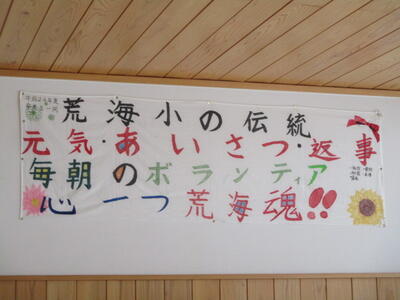 荒海小の伝統
元気・あいさつ・返事
毎朝のボランティア
心一つ荒海魂!!